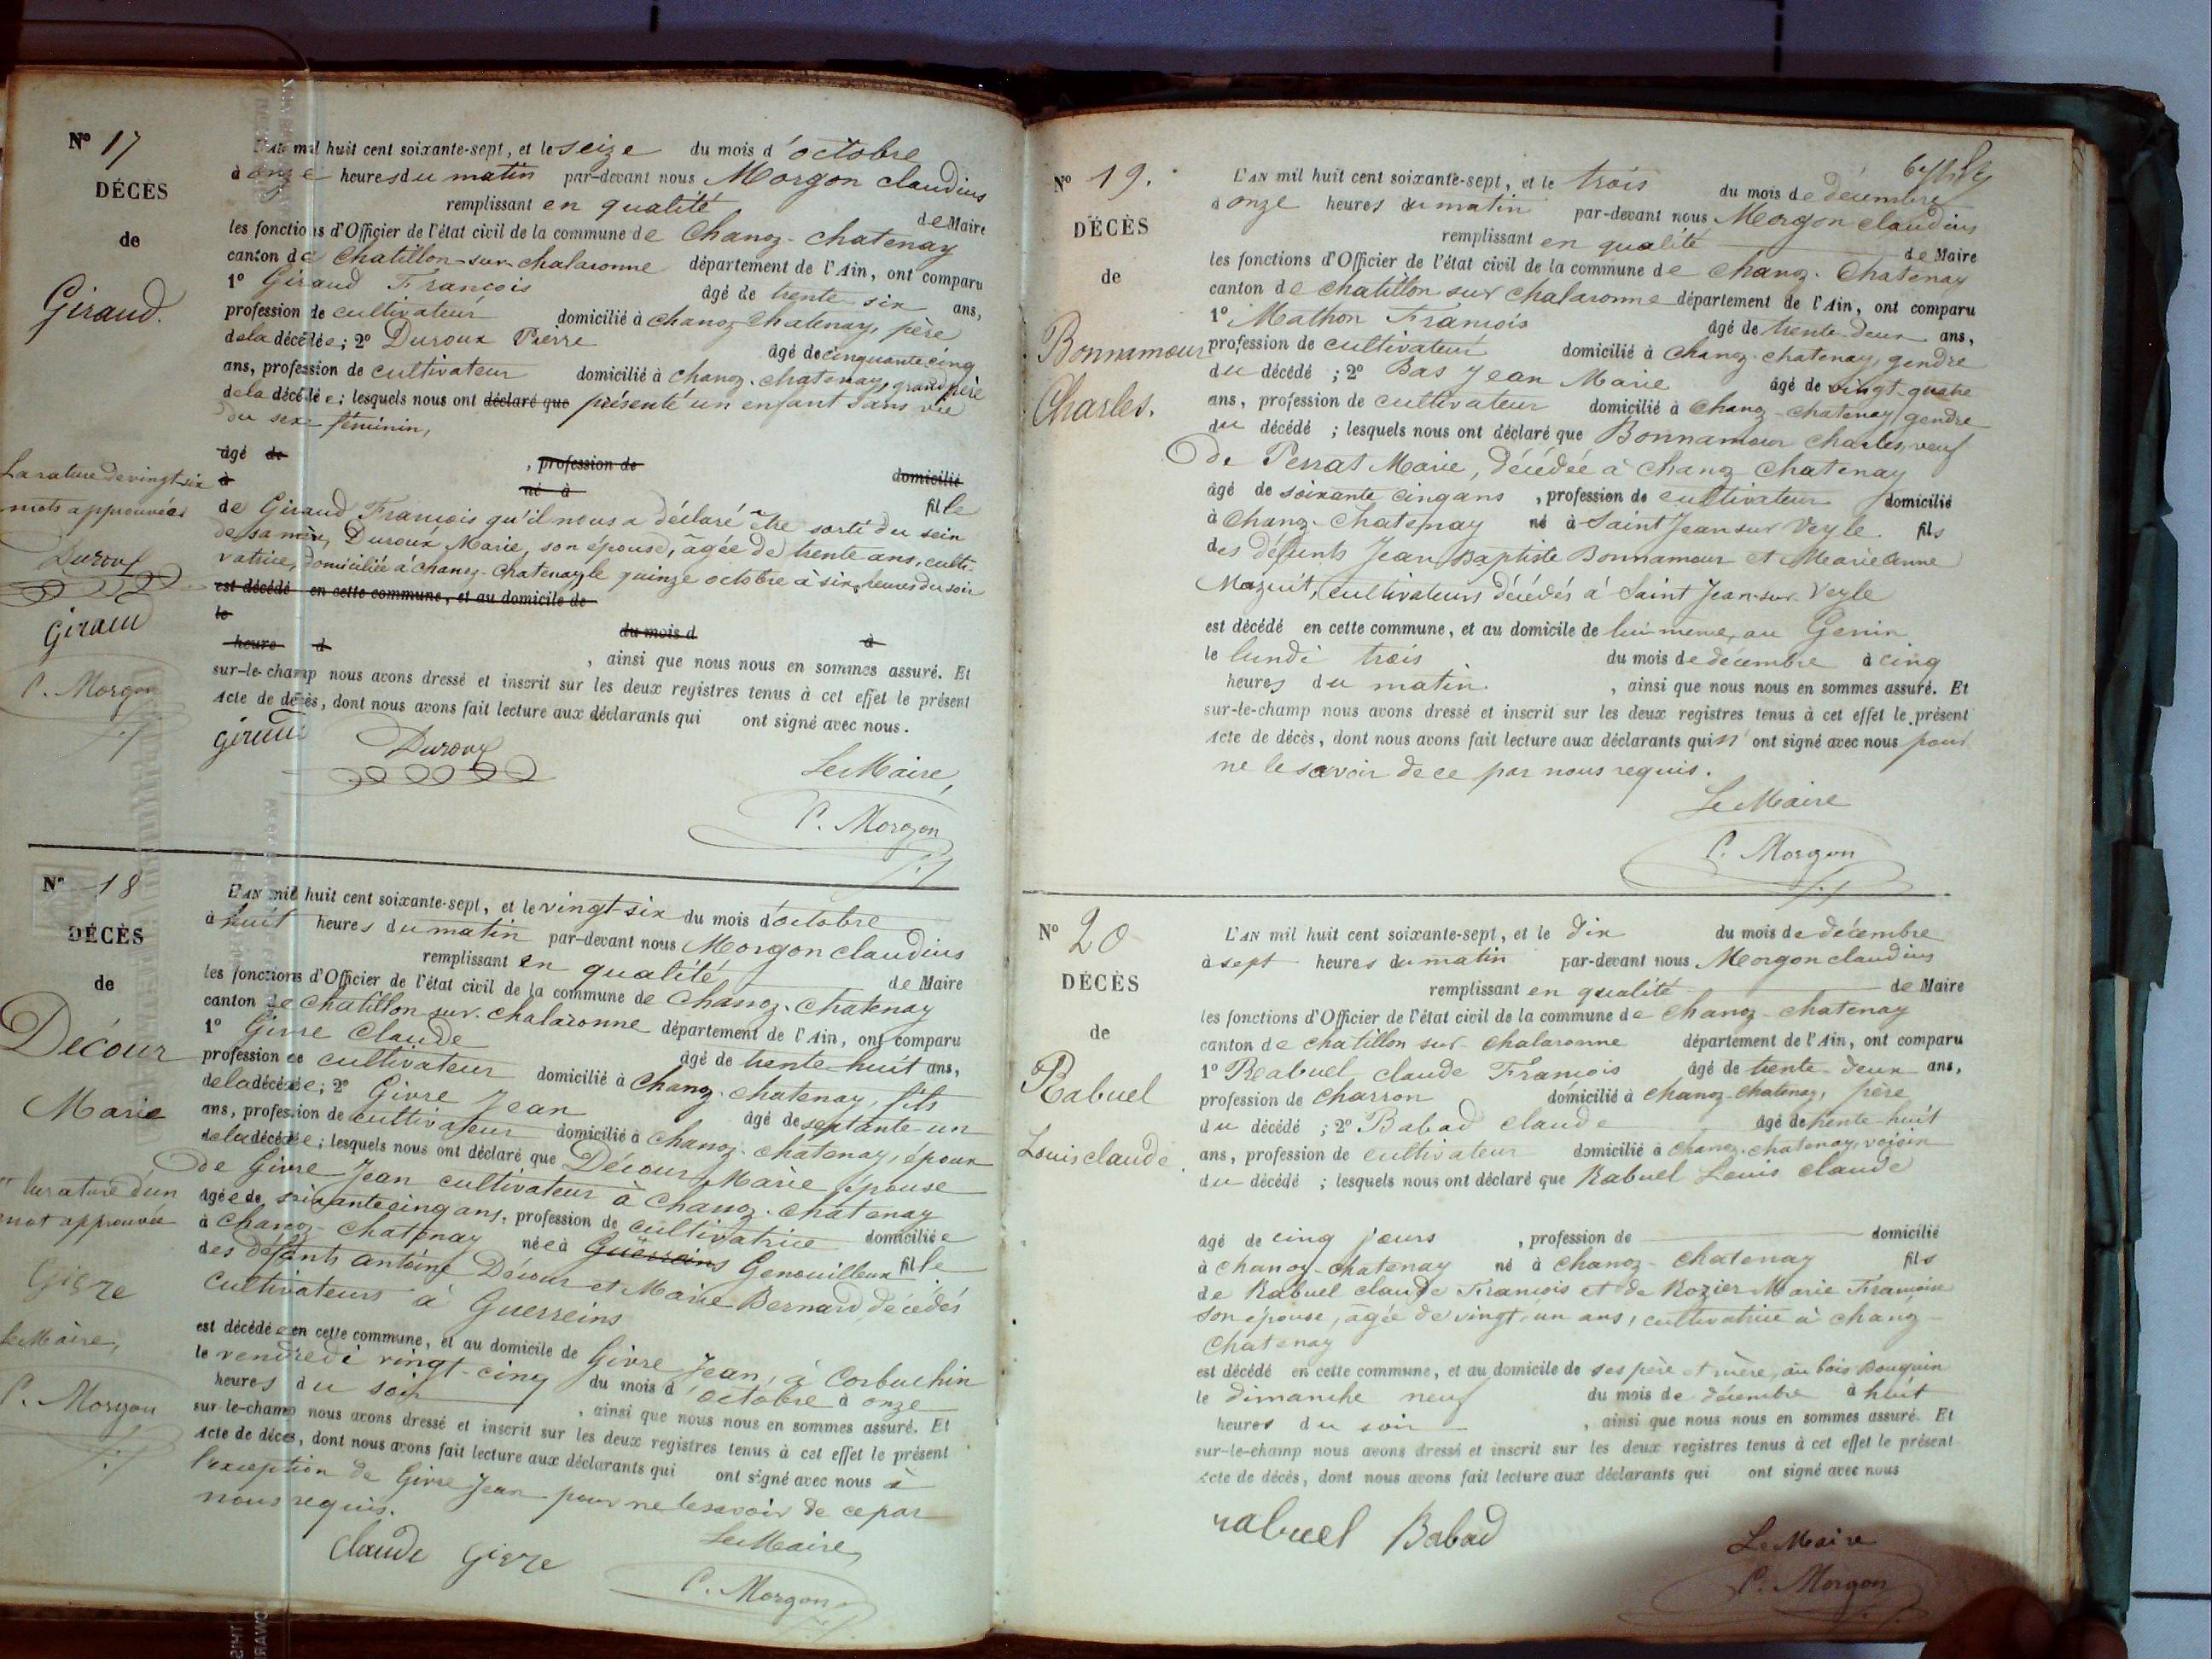 N° 17
DÉCÈS
de
Giraud.
La rature de vingt six
mots approuvées
Duroux
Giraud
C. Morgon
L'AN mil huit cent soixante-sept, et le seize du mois d'octobre
à onze heures du matin par-devant nous Morgon claudius
remplissant en qualité de Maire
les fonctions d'Officier de l'état civil de la commune de Chanoz-chatenay
canton de Chatillon-sur-chalaronne département de l'Ain, ont comparu
1° Giraud François âgé de trente six ans,
profession de cultivateur domicilié à chanoz-chatenay, père
de la décédée; 2° Duroux Pierre âgé de cinquante cinq
ans, profession de cultivateur domicilié à chanoz-chatenay, grand père
de la décédée; lesquels nous ont déclaré que présenté un enfant sans vie
du sexe féminin,
âgé de , profession de domicilié
à né à fille
de Giraud François qu'il nous a déclaré être sorti du sein
de sa mère, Duroux Marie, son épouse, âgée de trente ans, culti-
vatrice, domiciliée à chanoz-chatenay, le quinze octobre à six heures du soir
est décédé en cette commune, et au domicile de
le du mois d à
heure d , ainsi que nous nous en sommes assuré. Et
sur-le-champ nous avons dressé et inscrit sur les deux registres tenus à cet effet le présent
Acte de décès, dont nous avons fait lecture aux déclarants qui ont signé avec nous.
Giraud Duroux
Le Maire,
C. Morgon
N° 18
DÉCÈS
de
Décour
Marie
la rature d'un
mot approuvée
Givre
Le Maire,
C. Morgon
L'AN mil huit cent soixante-sept, et le vingt-six du mois d'octobre
à huit heures du matin par-devant nous Morgon claudius
remplissant en qualité de Maire
les fonctions d'Officier de l'état civil de la commune de Chanoz-chatenay
canton de Chatillon-sur-chalaronne département de l'Ain, ont comparu
1° Givre Claude âgé de trente-huit ans,
profession de cultivateur domicilié à Chanoz-chatenay, fils
de la décédée; 2° Givre Jean âgé de septante-un
ans, profession de cultivateur domicilié à Chanoz-chatenay, époux
de la décédée; lesquels nous ont déclaré que Décour Marie, épouse
de Givre Jean cultivateur à Chanoz-chatenay
âgée de soixante cinq ans, profession de cultivatrice domiciliée
à chanoz-chatenay née à Guerreins Genouilleux fille
des défunts Antoine Décour et Marie Bernard, décédés
cultivateurs à Guerreins
est décédée en cette commune, et au domicile de Givre Jean, à Corbuchin
le vendredi vingt-cinq du mois d'octobre à onze
heures du soir , ainsi que nous nous en sommes assuré. Et
sur-le-champ nous avons dressé et inscrit sur les deux registres tenus à cet effet le présent
Acte de décès, dont nous avons fait lecture aux déclarants qui ont signé avec nous à
l'exception de Givre Jean pour ne le savoir de ce par
nous requis.
Claude Givre
Le Maire,
C. Morgon
N° 19.
DÉCÈS
de
Bonnamour
Charles.
L'AN mil huit cent soixante-sept, et le trois du mois de décembre
à onze heures du matin par-devant nous Morgon claudius
remplissant en qualité de Maire
les fonctions d'Officier de l'état civil de la commune de chanoz-Chatenay
canton de chatillon sur chalaronne département de l'Ain, ont comparu
1° Mathon François âgé de trente-deux ans,
profession de cultivateur domicilié à chanoz-chatenay, gendre
du décédé ; 2° Bas Jean Marie âgé de vingt-quatre
ans, profession de cultivateur domicilié à Chanoz-chatenay, gendre
du décédé ; lesquels nous ont déclaré que Bonnamour Charles, veuf
de Perrat Marie, décédée à Chanoz Chatenay
âgé de soixante cinq ans , profession de cultivateur domicilié
à Chanoz-Chatenay né à Saint Jean sur Veyle fils
des défunts Jean Baptiste Bonnamour et Marie Anne
Mazuit, cultivateurs décédés à Saint Jean-sur-Veyle
est décédé en cette commune, et au domicile de lui même, au Genin
le lundi trois du mois de décembre à cinq
heures du matin , ainsi que nous nous en sommes assuré. Et
sur-le-champ nous avons dressé et inscrit sur les deux registres tenus à cet effet le présent
Acte de décès, dont nous avons fait lecture aux déclarants qui n'ont signé avec nous pour
ne le savoir de ce par nous requis.
Le Maire
C. Morgon
N° 20
DÉCÈS
de
Rabuel
Louis claude
L'AN mil huit cent soixante-sept, et le dix du mois de décembre
à sept heures du matin par-devant nous Morgon claudius
remplissant en qualité de Maire
les fonctions d'Officier de l'état civil de la commune de Chanoz-chatenay
canton de chatillon sur chalaronne département de l'Ain, ont comparu
1° Rabuel claude François âgé de trente-deux ans,
profession de charron domicilié à chanoz-chatenay, père
du décédé ; 2° Babad claude âgé de trente-huit
ans, profession de cultivateur domicilié à chanoz-chatenay, voisin
du décédé ; lesquels nous ont déclaré que Rabuel Louis claude
âgé de cinq jours , profession de domicilié
à chanoz-chatenay né à chanoz-chatenay fils
de Rabuel claude François et de Rozier Marie Françoise
son épouse, âgée de vingt-un ans, cultivatrice à chanoz-
Chatenay
est décédé en cette commune, et au domicile de ses père et mère, au bois Bouquin
le dimanche neuf du mois de décembre à huit
heures du soir , ainsi que nous nous en sommes assuré. Et
sur-le-champ nous avons dressé et inscrit sur les deux registres tenus à cet effet le présent
Acte de décès, dont nous avons fait lecture aux déclarants qui ont signé avec nous
rabuel Babad
Le Maire
C. Morgon